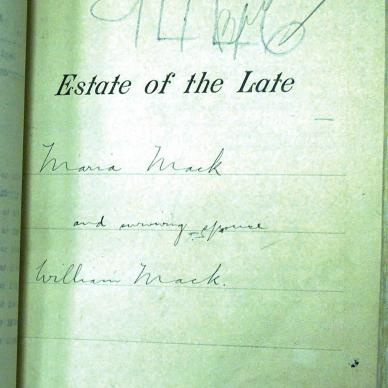 Estate of the Late
Maria Mack
and surviving spouse
William Mack.